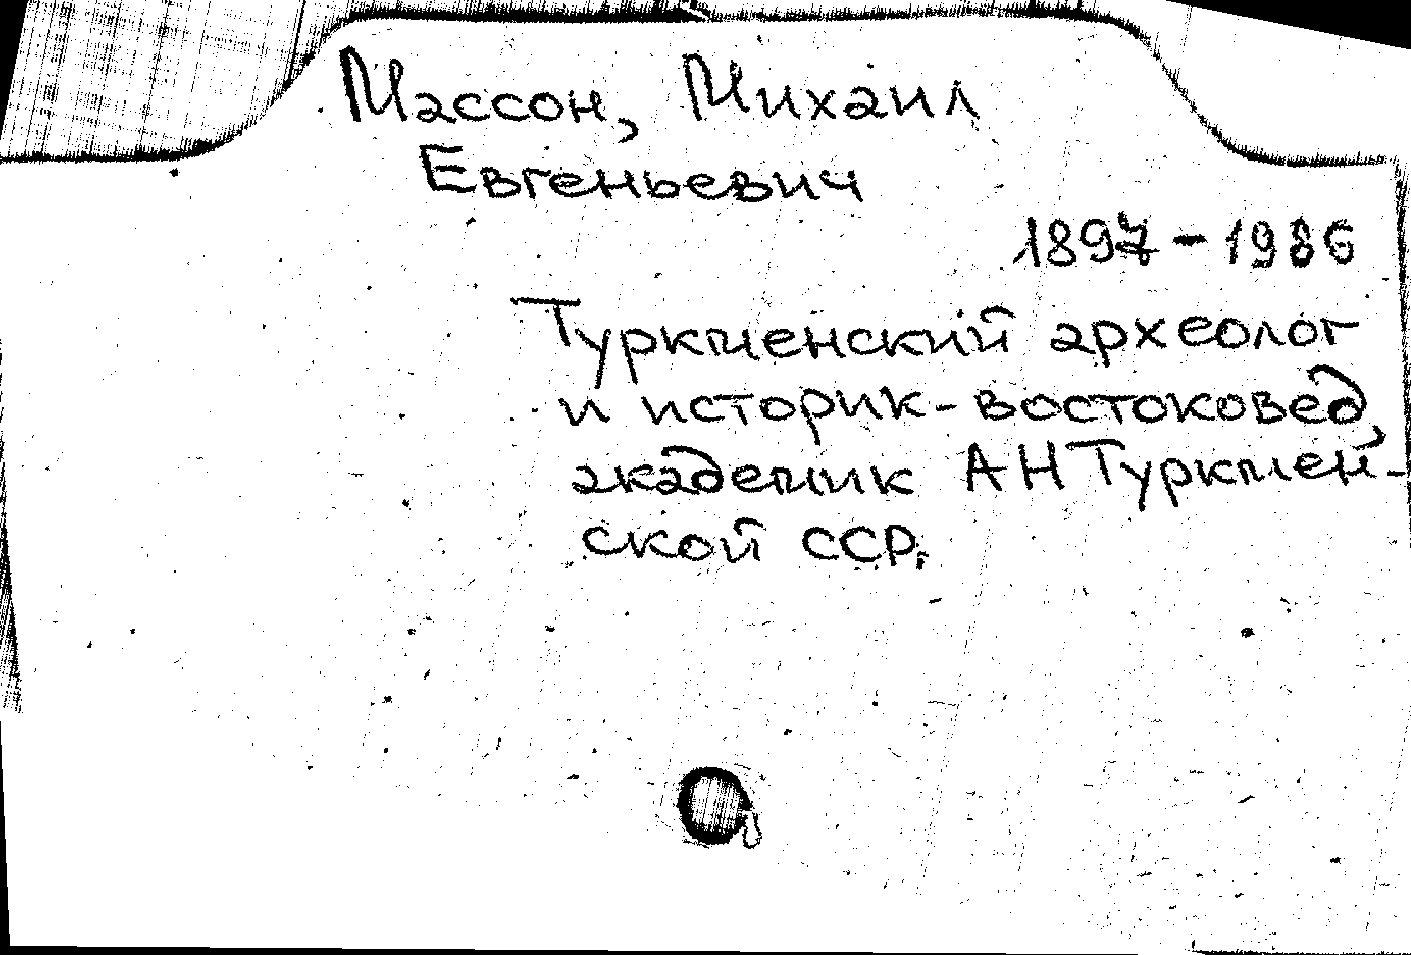 Массон, Михаил
Евгеньевич
1897-1986
Туркменский археолог
и историк-востоковед,
академик АН Туркмен-
ской ССР.